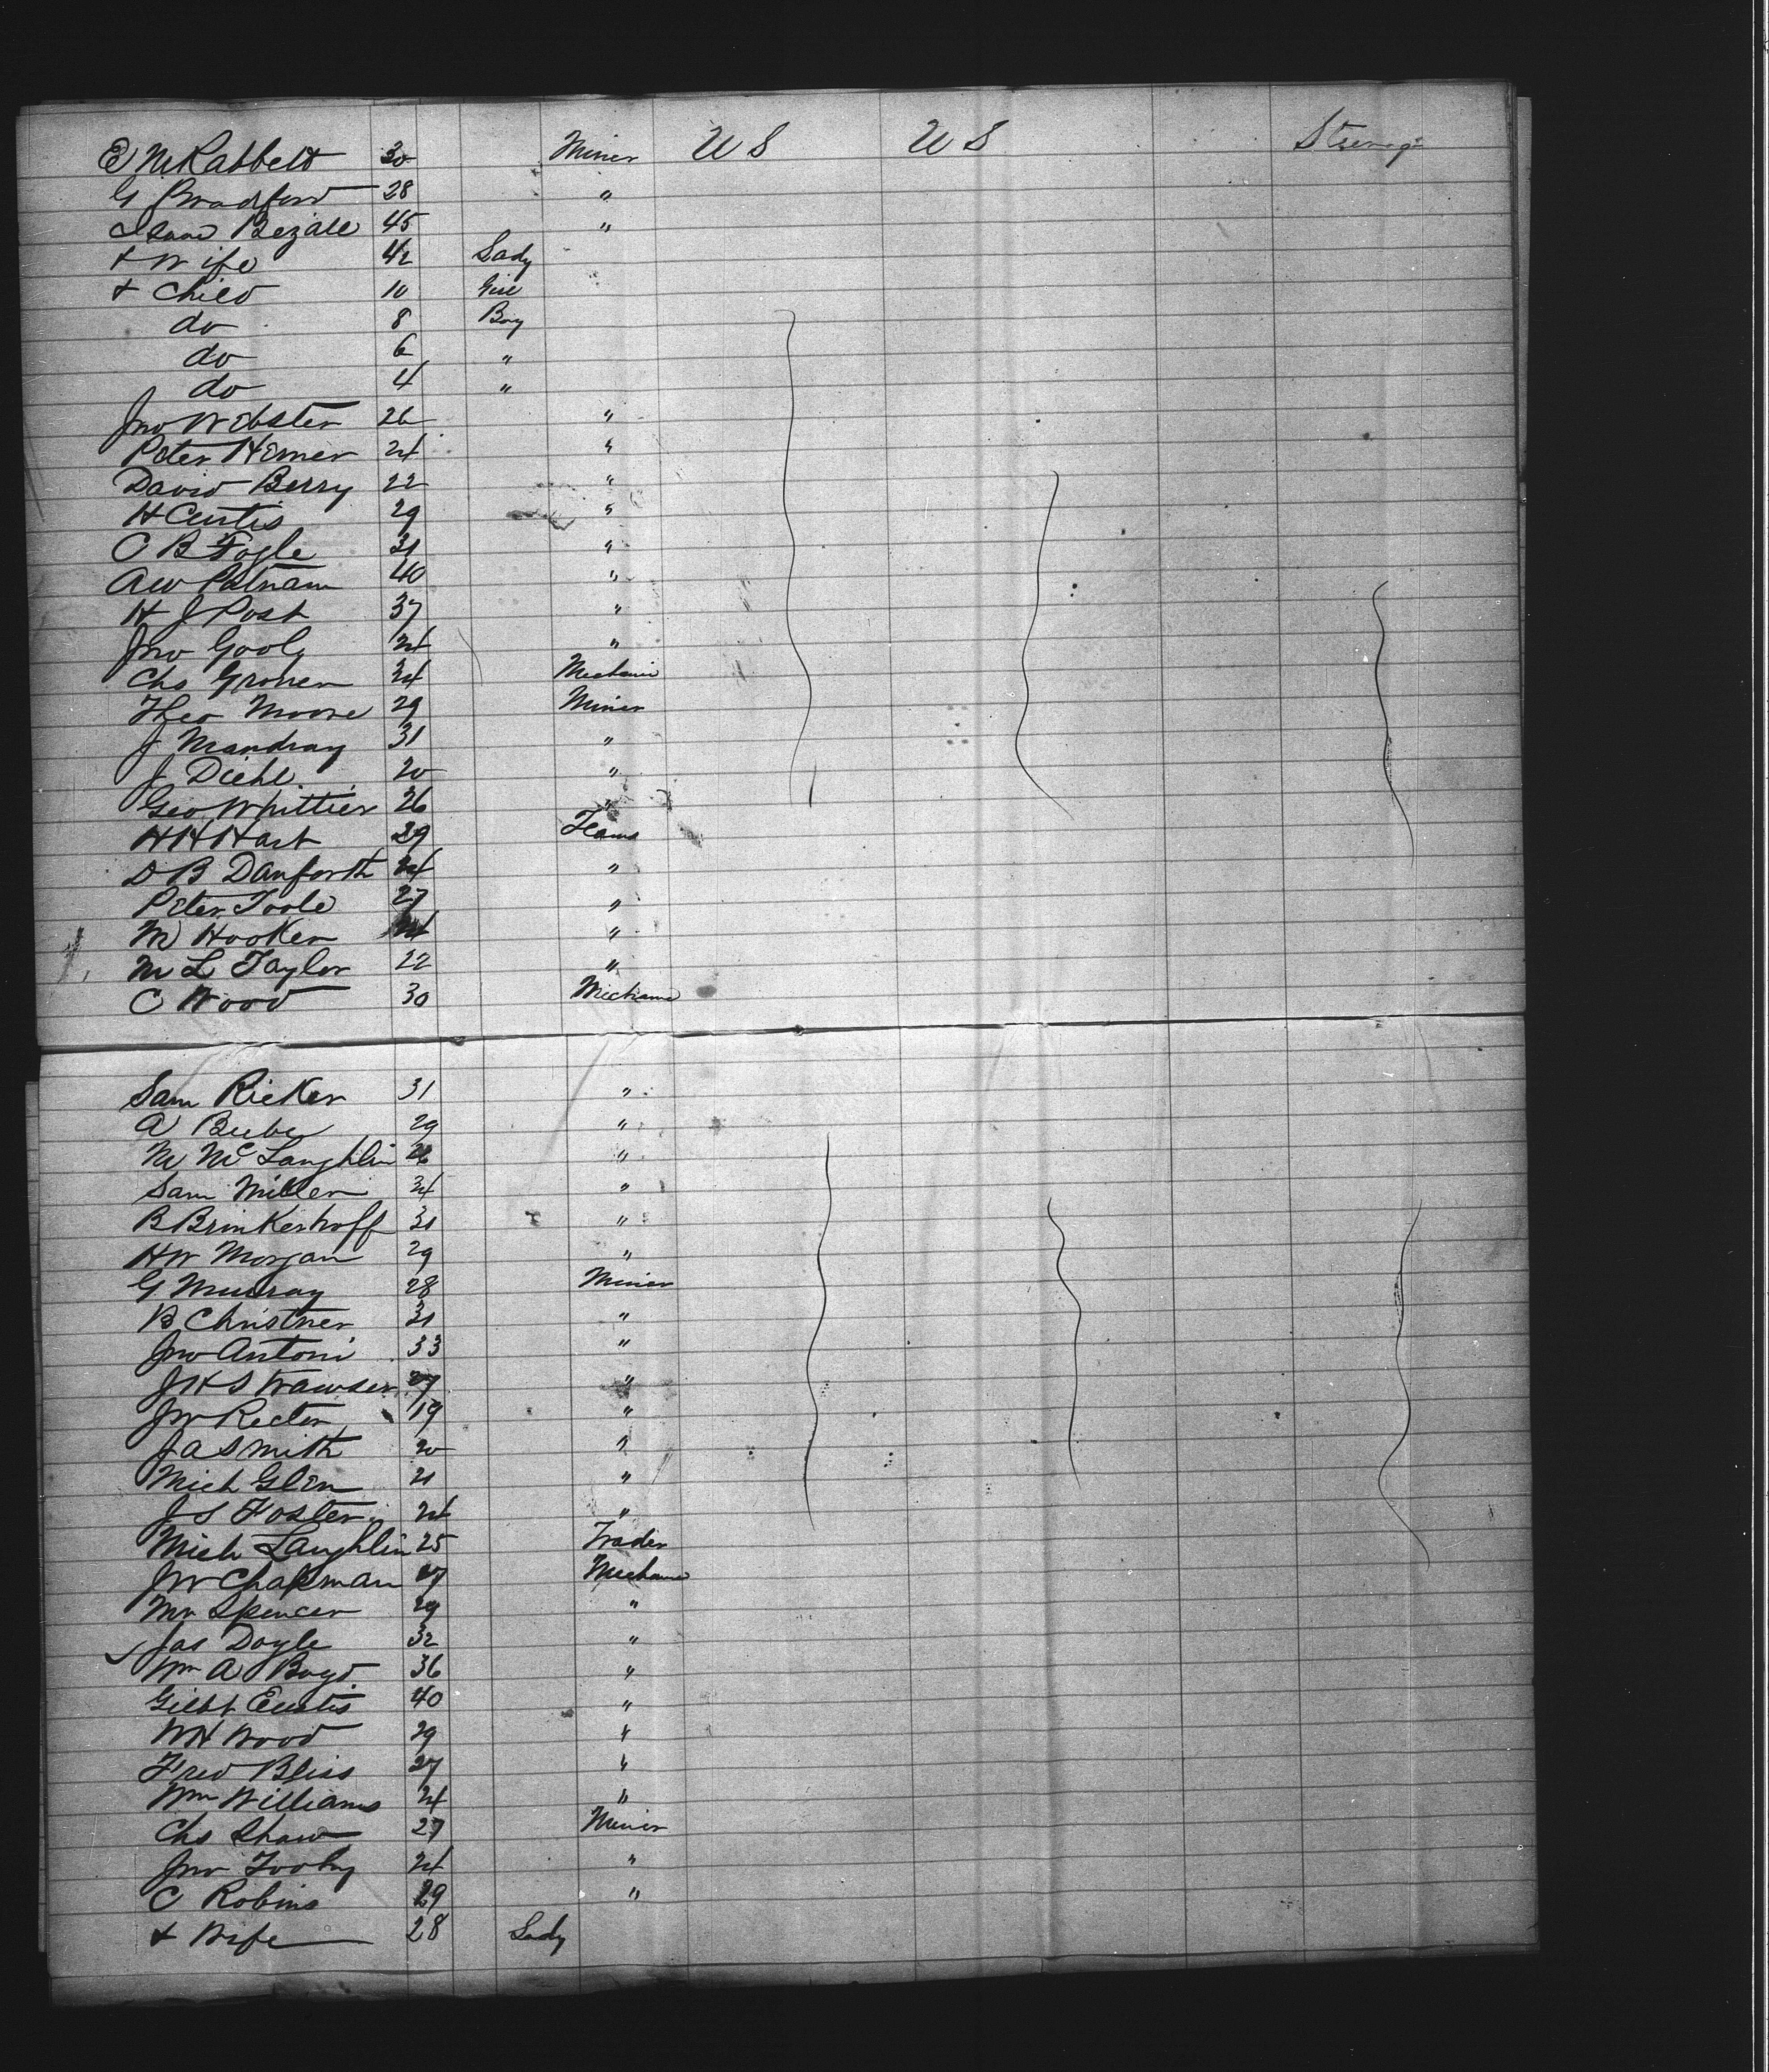 E M Rabbett 30 Miner U S U S Steerage
G Bradford 28 "
Isaac Bezale 45 "
+ Wife 42 Lady
+ Child 10 Girl
do 8 Boy
do 6 "
do 4 "
Jno Webster 26 "
Peter Hemer 24 "
David Berry 22 "
H Curtis 29 "
C B Fogle 31 "
A W Putnam 40 "
H J Post 37 "
Jno Gooly 24 "
Chs Groner 24 Mechanic
Theo Moore 29 Miner
J Mandray 31 "
J Diehl 20 "
Geo Whittier 26 "
H H Hart 29
D B Danforth 24 "
Peter Toole 27 "
M Hooker 24 "
M L Taylor 22 "
C Wood 30 Mechanic
Sam Ricker 31 "
A Beebe 29 "
M McLaughlin 26 "
Sam Miller 34 "
B Brinkerhoff 31 "
H W Morgan 29 "
G Murray 28 Miner
B Christner 31 "
Jno Antoni 33 "
J H Strawser 27 "
J W Recter 19 "
J A Smith 20 "
Mich Glen 21 "
J S Foster 24 "
Mich Laughlin 25 Trader
J W Chapman 27 Mechanic
Mr Spencer 29 "
Jas Doyle 32 "
Wm A Boyd 36 "
Gilbt Eustis 40 "
W H Wood 29 "
Fred Bliss 27 "
Wm Williams 24 "
Chs Shaw 27 Miner
Jno Tooly 24 "
C Robins 29 "
+ Wife 28 Lady